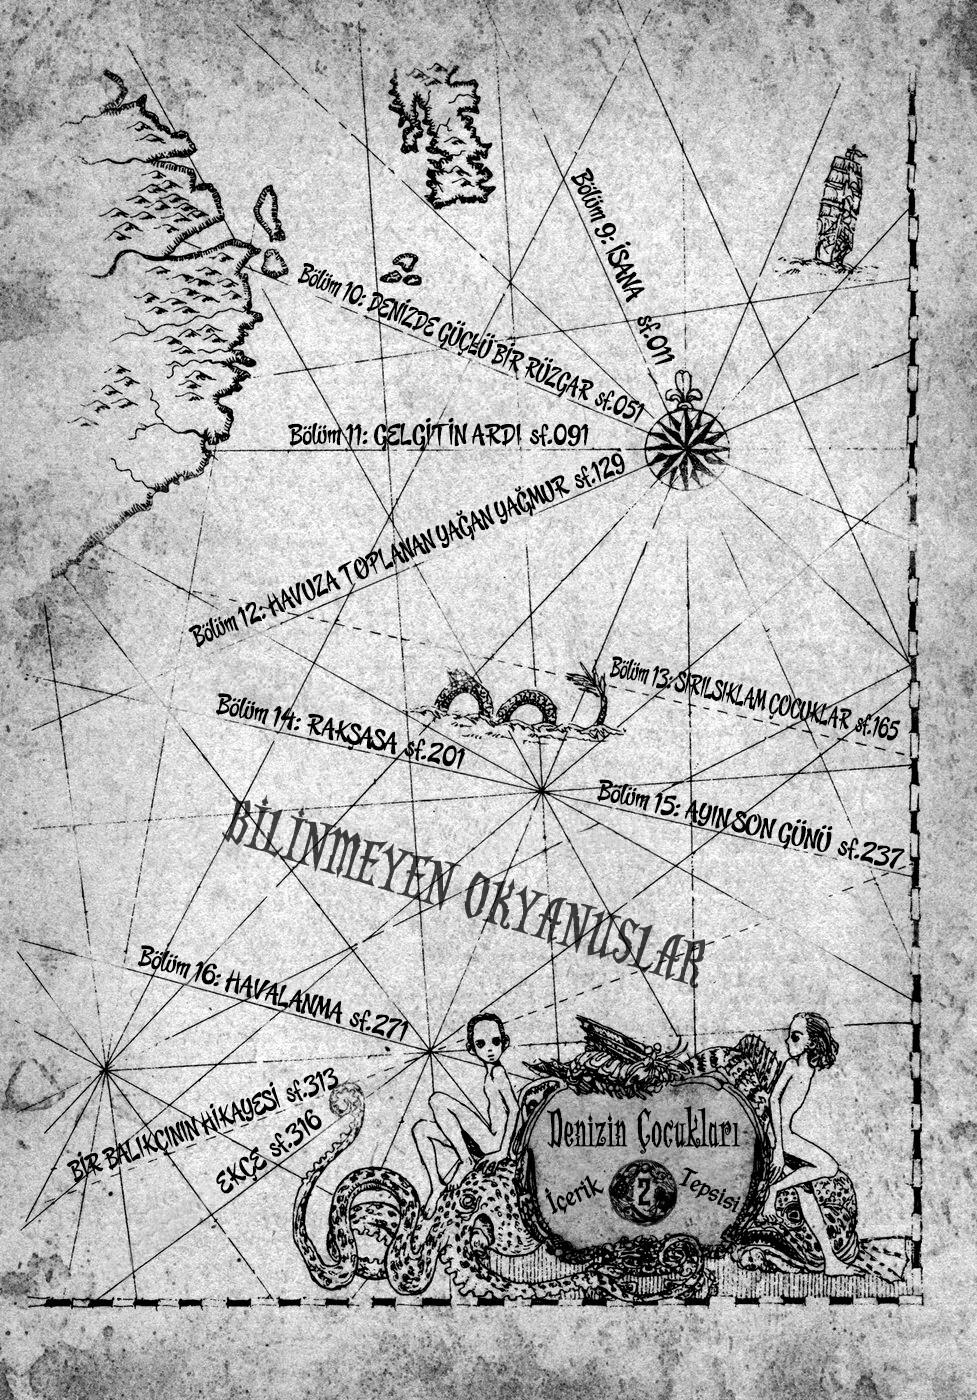 Bölüm 9: İSANA sf.011
Bölüm 10: DENİZDE GÜÇLÜ BİR RÜZGAR sf.051
Bölüm 11: GELGİTİN ARDI sf.091
Bölüm 12: HAVUZA TOPLANAN YAĞAN YAĞMUR sf.129
Bölüm 13: SIRILSIKLAM ÇOCUKLAR sf.165
Bölüm 14: RAKŞASA sf.201
Bölüm 15: AYIN SON GÜNÜ sf.237
BİLİNMEYEN OKYANUSLAR
Bölüm 16: HAVALANMA sf.271
BİR BALIKÇININ HİKAYESİ sf.313
EKÇE sf.316
Denizin Çocukları
İçerik 2 Tepsisi